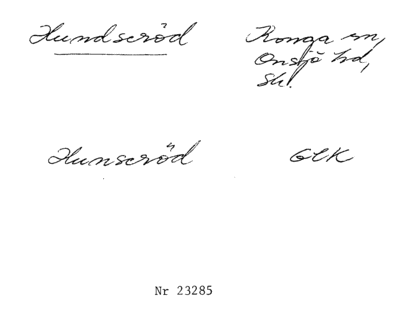 Hundseröd
Konga sn,
Onsjö hd,
Sk!
Hunseröd
GEK
Nr 23285